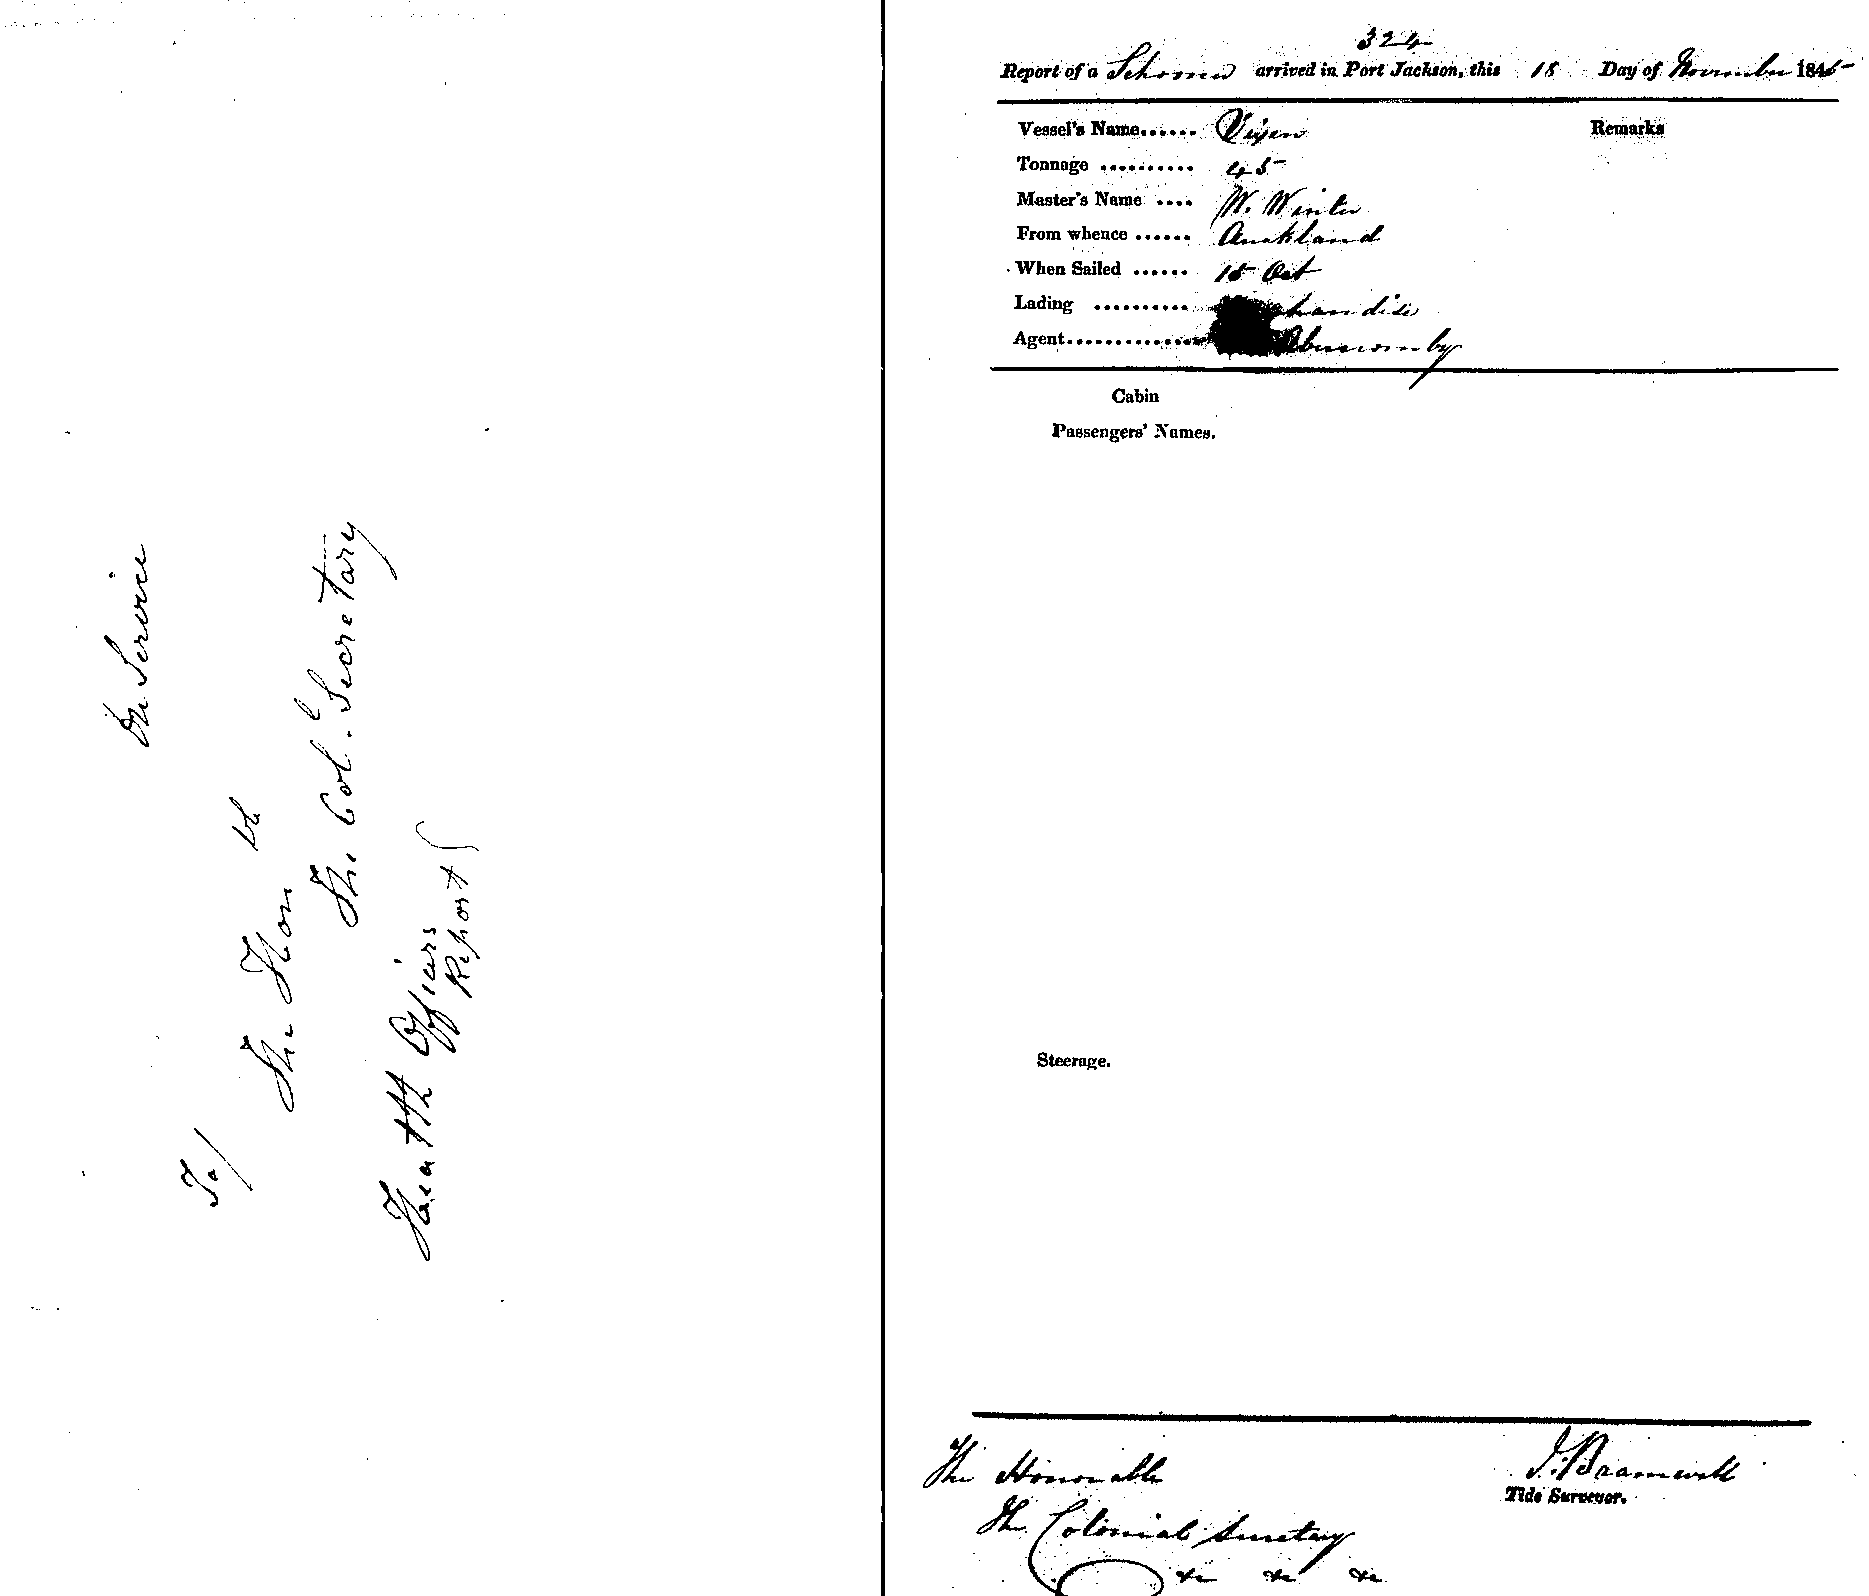 On Service
To/
The Hon ble
The Col.l Secretary
Health Officers
Report
324
Report of a Schooner arrived in Port Jackson, this 18 Day of November 1845
Vessel's Name...... Vixen
Remarks
Tonnage .......... 45
Master's Name .... W. Winter
From whence ...... Auckland
When Sailed ...... 15 Oct
Lading .......... chandise
Agent.............. Abercromby
Cabin
Passengers' Names.
Steerage.
The Honorable
The Colonial Secretary
&c &c &c
J. Bramwell
Tide Surveyor.